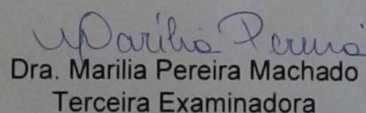 Marilia Pereira
Dra. Marilia Pereira Machado
Terceira Examinadora